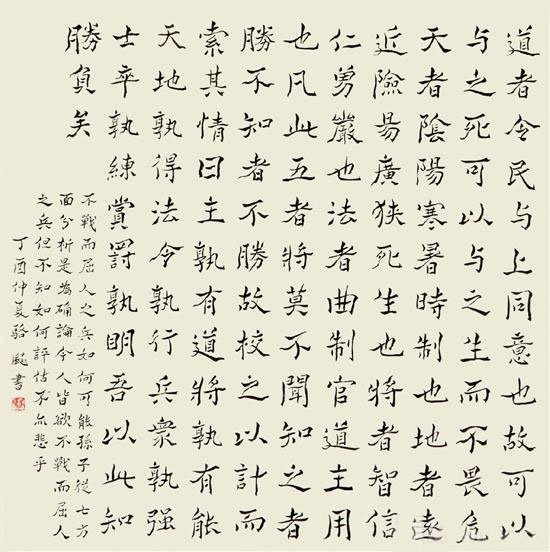 道者令民与上同意也故可以
与之死可以与之生而不畏危
天者陰陽寒暑時制也地者遠
近險易廣狹死生也將者智信
仁勇嚴也法者曲制官道主用
也凡此五者將莫不聞知之者
勝不知者不勝故校之以計而
索其情曰主孰有道將孰有能
天地孰得法令孰行兵衆孰强
士卒孰練賞罰孰明吾以此知
勝負矣
不戰而屈人之兵如何可能孫子從七方
面分析是為确論今人皆欲不戰而屈人
之兵但不知如何評估不亦悲乎
丁酉仲夏駱飈書